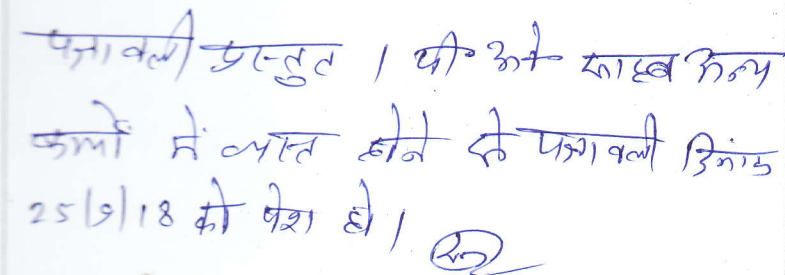 पत्रावली प्रस्तुत । पी० ओ० साहब अन्य
कार्यों में व्यस्त होने से पत्रावली दिनांक
25/9/18 को पेश हो ।